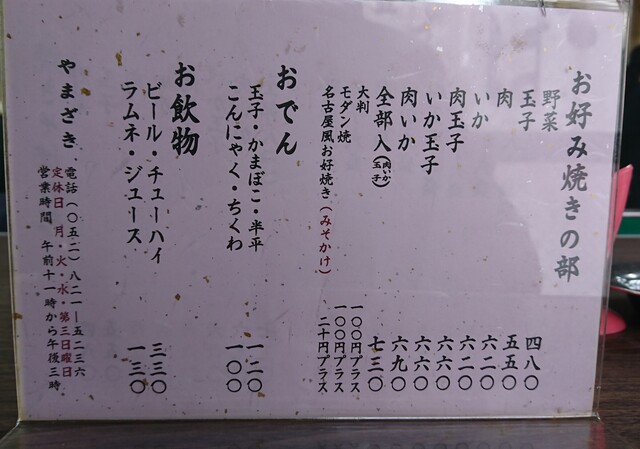 お好み焼きの部
野菜 四八〇
玉子 五五〇
肉 六二〇
いか 六二〇
肉玉子 六六〇
いか玉子 六六〇
肉いか 六九〇
全部入(肉いか玉子) 七三〇
大判 一〇〇円プラス
モダン焼 一〇〇円プラス
名古屋風お好焼き(みそかけ) 二十円プラス
おでん
玉子・かまぼこ・半平 一二〇
こんにゃく・ちくわ 一〇〇
お飲物
ビール・チューハイ 三三〇
ラムネ・ジュース 一三〇
やまざき
電話(〇五二)八二一―五二三六
定休日 月・火・水・第三日曜日
営業時間 午前十一時から午後三時